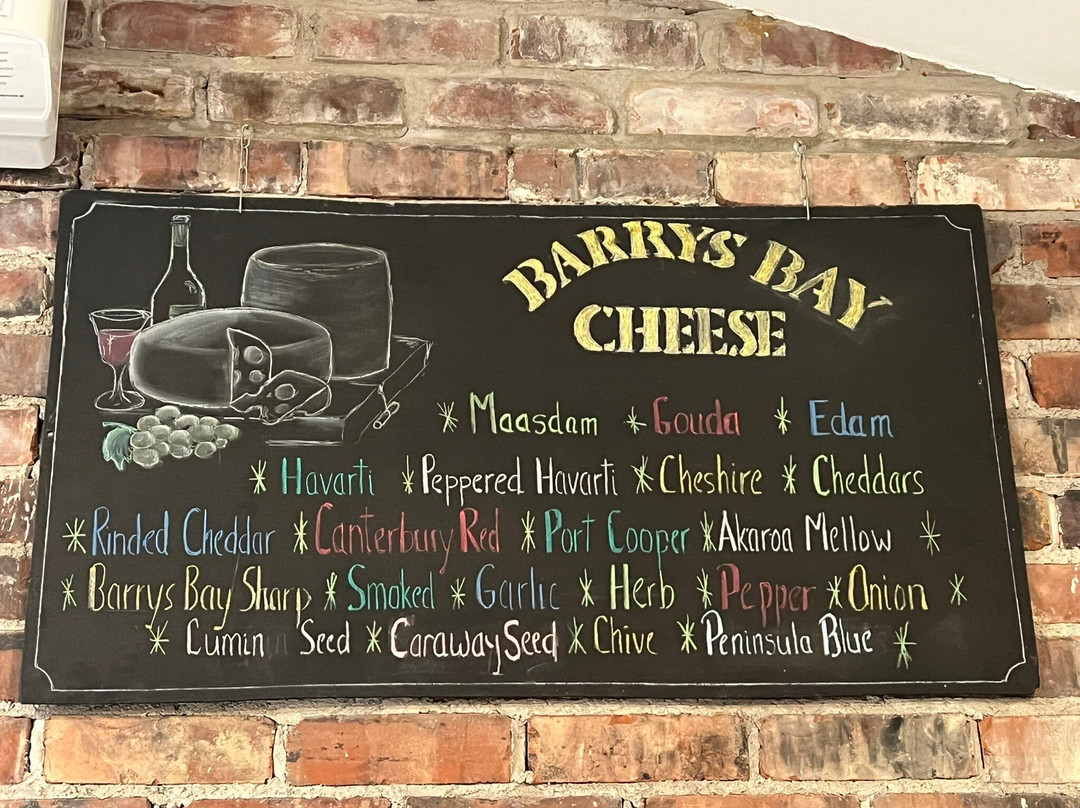 BARRYS BAY
CHEESE
* Maasdam * Gouda * Edam
* Havarti * Peppered Havarti * Cheshire * Cheddars
* Rinded Cheddar * Canterbury Red * Port Cooper * Akaroa Mellow *
* Barrys Bay Sharp * Smoked * Garlic * Herb * Pepper * Onion *
* Cumin Seed * Caraway Seed * Chive * Peninsula Blue *